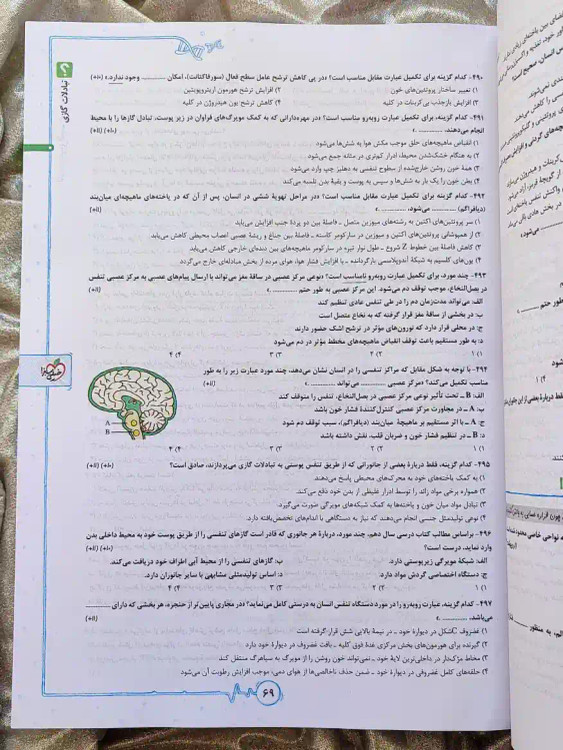 تبادلات گازی
۴۹۰- کدام گزینه برای تکمیل عبارت مقابل مناسب است؟ «در پی کاهش ترشح عامل سطح فعال (سورفاکتانت)، امکان ........... وجود ندارد.»
۱) تغییر ساختار پروتئین‌های خون
۲) افزایش ترشح هورمون اریتروپویتین
۳) افزایش بازجذب بی‌کربنات در کلیه
۴) کاهش ترشح یون هیدروژن در کلیه
۴۹۱- کدام گزینه، برای تکمیل عبارت روبه‌رو مناسب است؟ «در مهره‌دارانی که به کمک مویرگ‌های فراوان در زیر پوست، تبادل گازها را با محیط
انجام می‌دهند، ...........»
۱) انقباض ماهیچه‌های حلق موجب مکش هوا به شش‌ها می‌شود
۲) به هنگام خشک‌شدن محیط، ادرار کم‌تری در مثانه جمع می‌شود
۳) همهٔ خون روشن خارج‌شده از سطوح تنفسی به دهلیز چپ وارد می‌شود
۴) بطن خون را یک بار به شش‌ها و سپس به پوست و بقیهٔ بدن تلمبه می‌کند
۴۹۲- کدام گزینه برای تکمیل عبارت مقابل مناسب است؟ «در مراحل تهویهٔ ششی در انسان، پس از آن که در یاخته‌های ماهیچه‌ای میان‌بند
(دیافراگم)، ........... می‌شود، ...........»
۱) سر پروتئین‌های اکتین به رشته‌های میوزین متصل ـ فاصلهٔ بین دو پردهٔ جنب افزایش می‌یابد
۲) از همپوشانی پروتئین‌های اکتین و میوزین در سارکومر کاسته ـ فاصلهٔ بین جناغ و ریشهٔ عصبی اعصاب محیطی کاهش می‌یابد
۳) کاهش فاصلهٔ بین خطوط Z شروع ـ طول نوار تیره در سارکومر ماهیچه‌های بین دنده‌ای خارجی کاهش می‌یابد
۴) یون‌های کلسیم به شبکهٔ آندوپلاسمی بازگردانده ـ با افزایش فشار هوا، هوای مرده از بخش مبادله‌ای خارج می‌گردد
۴۹۳- چند مورد، برای تکمیل عبارت روبه‌رو نامناسب است؟ «نوعی مرکز عصبی در ساقهٔ مغز می‌تواند با ارسال پیام‌های عصبی به مرکز عصبی تنفس
در بصل‌النخاع، موجب توقف دم می‌شود. این مرکز عصبی به طور حتم ...........»
الف: می‌تواند مدت‌زمان دم را در طی تنفس عادی تنظیم کند
ب: در بخشی از ساقهٔ مغز قرار گرفته که به نخاع متصل است
ج: در محلی قرار دارد که نورون‌های مؤثر در ترشح اشک حضور دارند
د: به طور مستقیم باعث توقف انقباض ماهیچه‌های مخطط مؤثر در دم می‌شود
۱) ۱ ۲) ۲ ۳) ۳ ۴) ۴
۴۹۴- با توجه به شکل مقابل که مراکز تنفسی را در انسان نشان می‌دهد، چند مورد عبارت زیر را به طور
مناسب تکمیل می‌کند؟ «مرکز عصبی ........... می‌تواند ...........»
الف: B ـ تحت تأثیر نوعی مرکز عصبی در بصل‌النخاع، تنفس را متوقف کند
ب: A ـ در مجاورت مرکز عصبی کنترل‌کنندهٔ فشار خون باشد
ج: A ـ با اثر مستقیم بر ماهیچهٔ میان‌بند (دیافراگم)، سبب توقف دم شود
د: B ـ در تنظیم فشار خون و ضربان قلب، نقش داشته باشد
۱) ۱ ۲) ۲ ۳) ۳ ۴) ۴
A
B
۴۹۵- کدام گزینه، فقط دربارهٔ بعضی از جانورانی که از طریق تنفس پوستی به تبادلات گازی می‌پردازند، صادق است؟
۱) به کمک یاخته‌های خود به محرک‌های محیطی پاسخ می‌دهند
۲) همواره برخی مواد زائد را توسط ادرار غلیظی از بدن خود دفع می‌کند
۳) تبادل مواد میان خون و یاخته‌ها به کمک شبکه‌های مویرگی صورت می‌گیرد
۴) نوعی تولیدمثل جنسی انجام می‌دهند که نیاز به دستگاهی با اندام‌های تخصص‌یافته دارد
۴۹۶- براساس مطالب کتاب درسی سال دهم، چند مورد، دربارهٔ هر جانوری که قادر است گازهای تنفسی را از طریق پوست خود به محیط داخلی بدن
وارد نماید، درست است؟
الف: شبکهٔ مویرگی زیرپوستی دارد.
ب: گازهای تنفسی را از محیط آبی اطراف خود دریافت می‌کند.
ج: دستگاه اختصاصی گردش مواد دارد.
د: اساس تولیدمثلی مشابهی با سایر جانوران دارد.
۱) ۱ ۲) ۲ ۳) ۳ ۴) ۴
۴۹۷- کدام گزینه، عبارت روبه‌رو را در مورد دستگاه تنفس انسان به درستی کامل می‌نماید؟ «در مجاری پایین‌تر از حنجره، هر بخشی که دارای ...........
می‌باشد، ...........»
۱) غضروف C شکل در دیوارهٔ خود ـ در نیمهٔ بالایی شش قرار گرفته است
۲) گیرنده برای هورمون‌های بخش مرکزی غدهٔ فوق کلیه ـ بافت غضروف در دیوارهٔ خود دارد
۳) مخاط مژک‌دار در داخلی‌ترین لایهٔ خود ـ نمی‌تواند خون روشن را از مویرگ به سیاهرگ منتقل کند
۴) حلقه‌های کامل غضروفی در دیوارهٔ خود ـ ضمن حذف ناخالصی‌ها از هوای دمی، موجب افزایش رطوبت آن می‌شود
۶۹